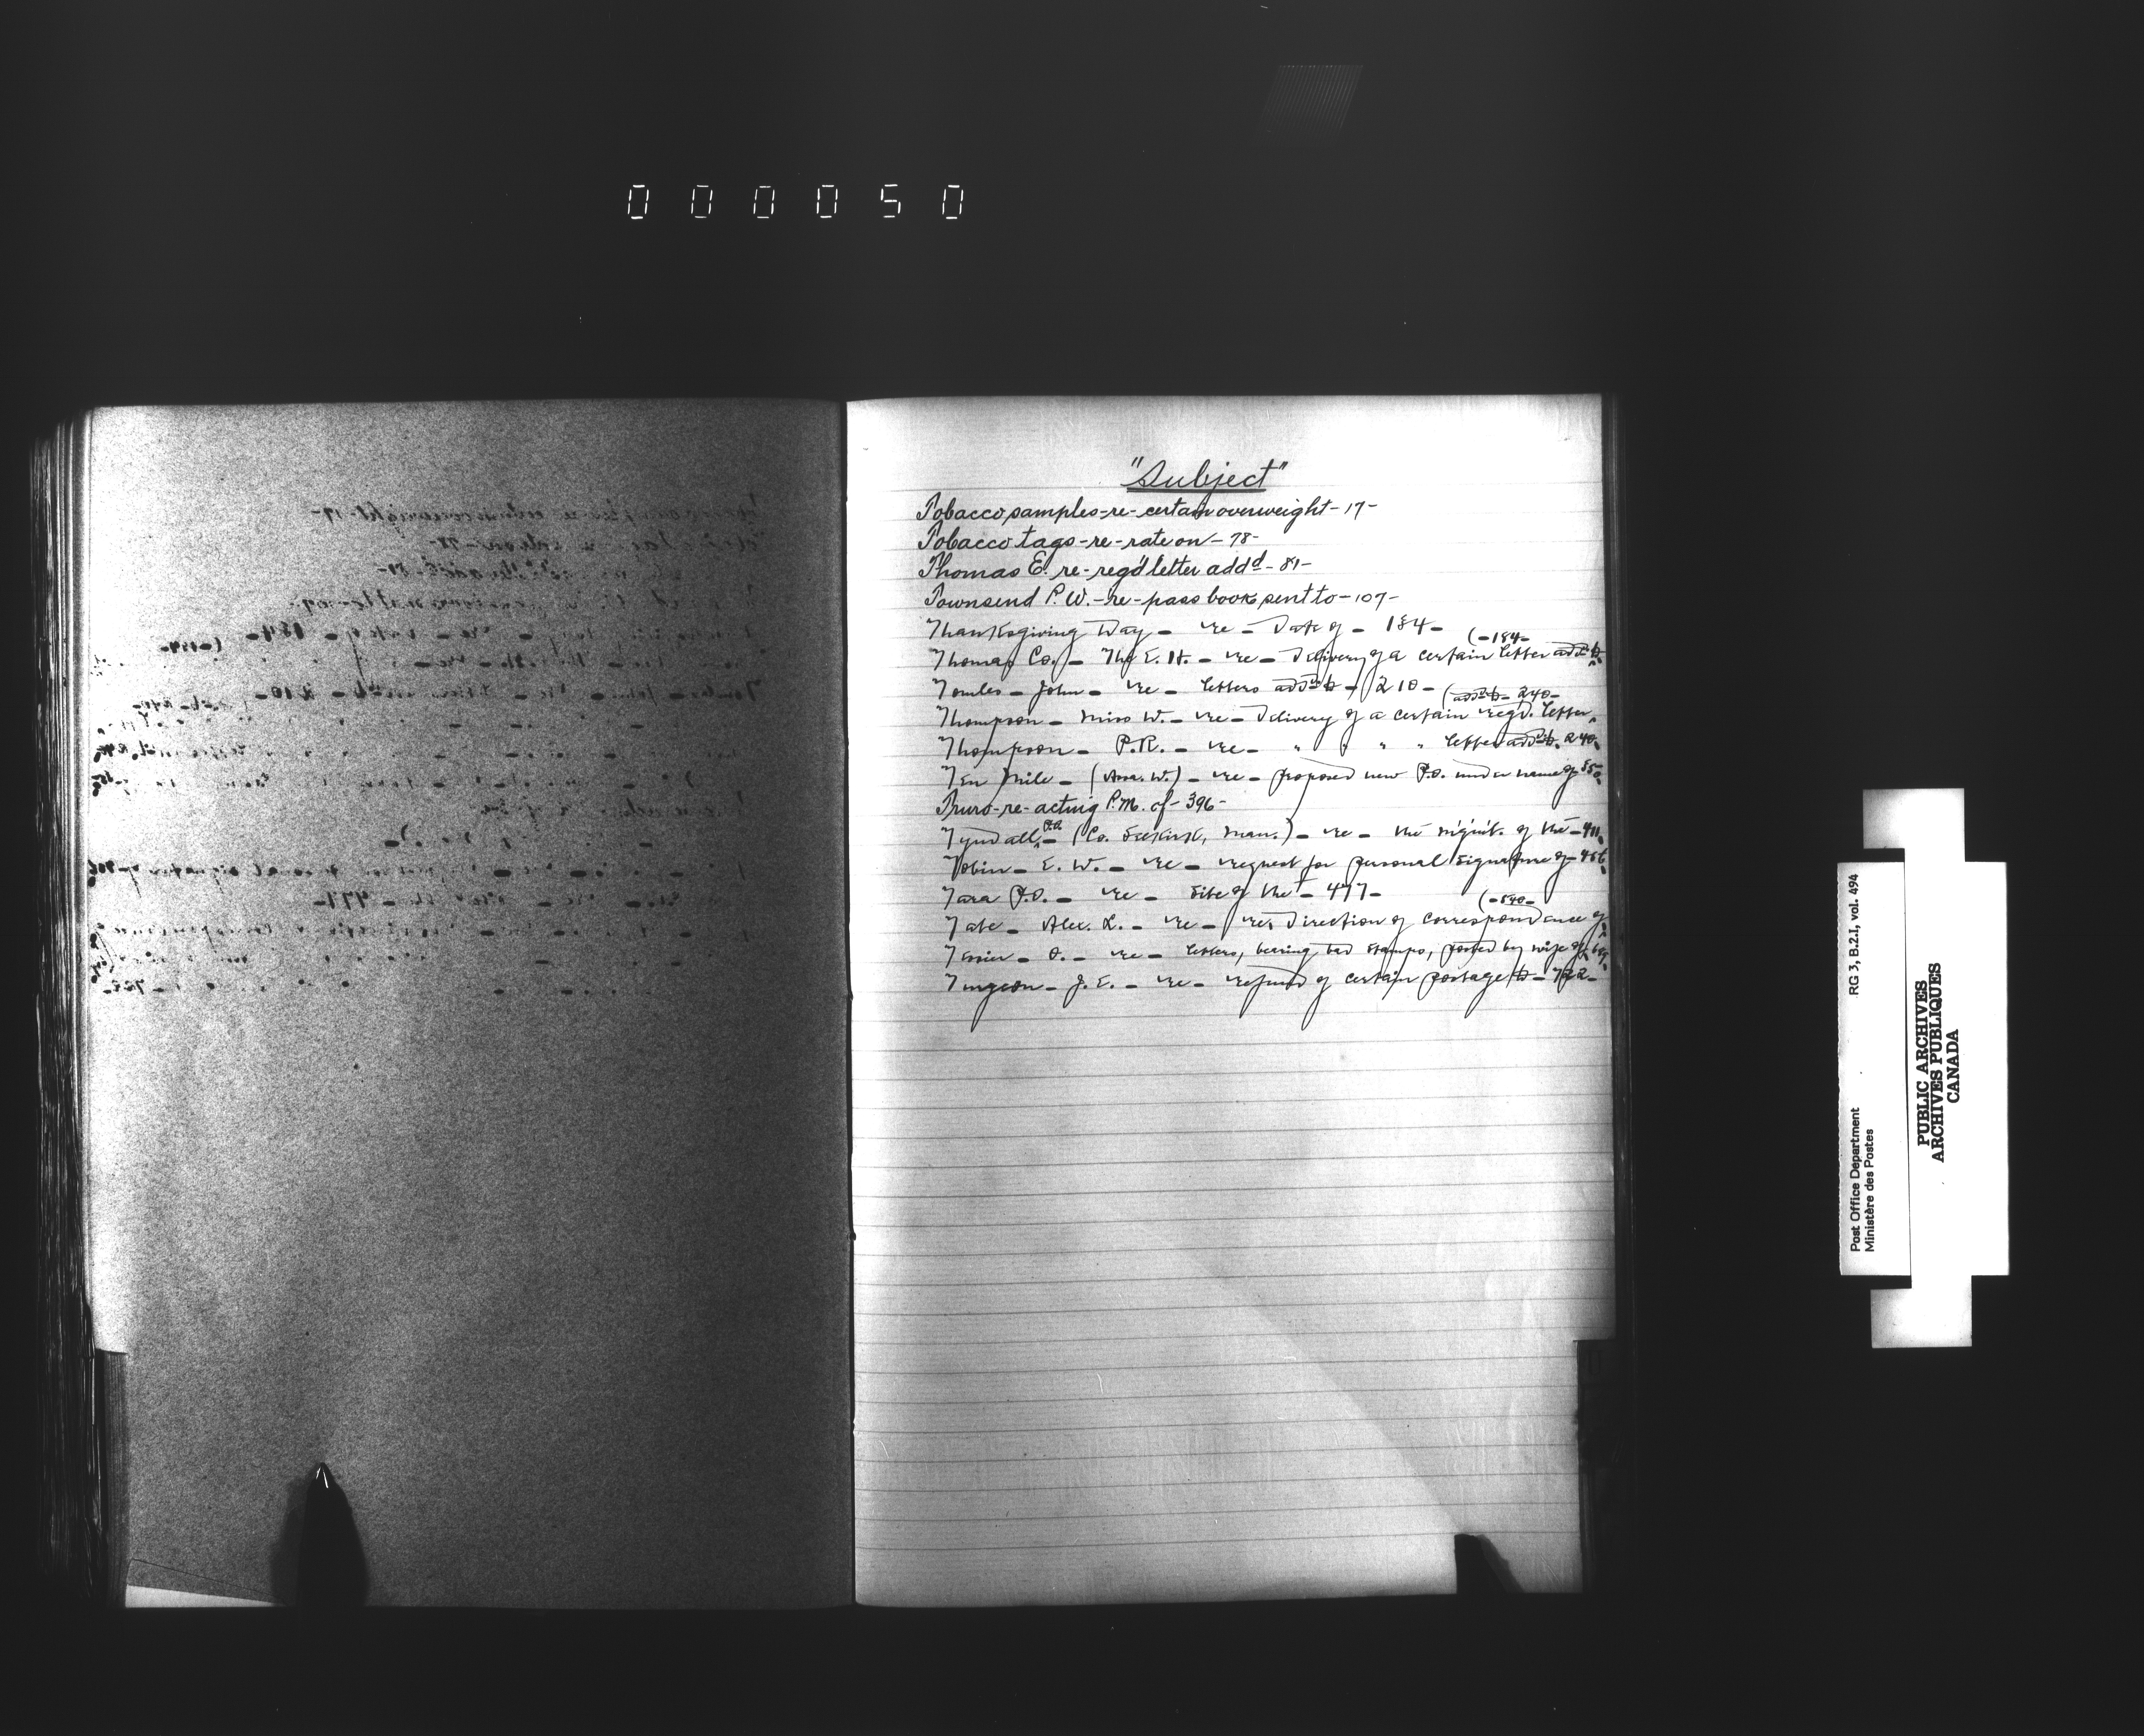 000050
"Subject"
Tobacco samples-re-certain overweight-17-
Tobacco tags-re-rate on-78-
Thomas E. re-reg'd letter addd-81-
Townsend P. W.-re-pass book sent to-107-
Thanksgiving Day - re - Date of - 184-
(-184-
Thomas Co. - The E. H. - re - Delivery of a certain letter add'd to
Tomles - John - re - letters add'd to - 210-
(add'd to - 240-
Thompson - Miss W. - re - Delivery of a certain reg'd. letter
Thompson - P.R. - re - " " " " letter add'd to. 240.
Ten Mile - (Assa. W.) - re - proposed new P.O. under name of
Truro-re-acting P.M. of-396-
Tyndall P.O. - (Co. Selkirk, Man.) - re - the night. of the - 411
Tobin - E. W. - re - request for personal signature of - 456
Tara P.O. - re - site of the - 477-
(-540-
Tate - Alex. L. - re - re Direction of correspondence of
Tessier - O. - re - letters, bearing bad stamps, posted by wife of
Turgeon - J. E. - re - refund of certain postage to - 722-
Post Office Department
Ministère des Postes
RG 3, B.2.I, vol. 494
PUBLIC ARCHIVES
ARCHIVES PUBLIQUES
CANADA